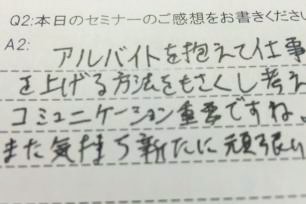 Q2:本日のセミナーのご感想をお書きください
A2:
アルバイトを抱えて仕事
を上げる方法をもさくし考え
コミュニケーション重要ですね。
また気持ち新たに頑張い